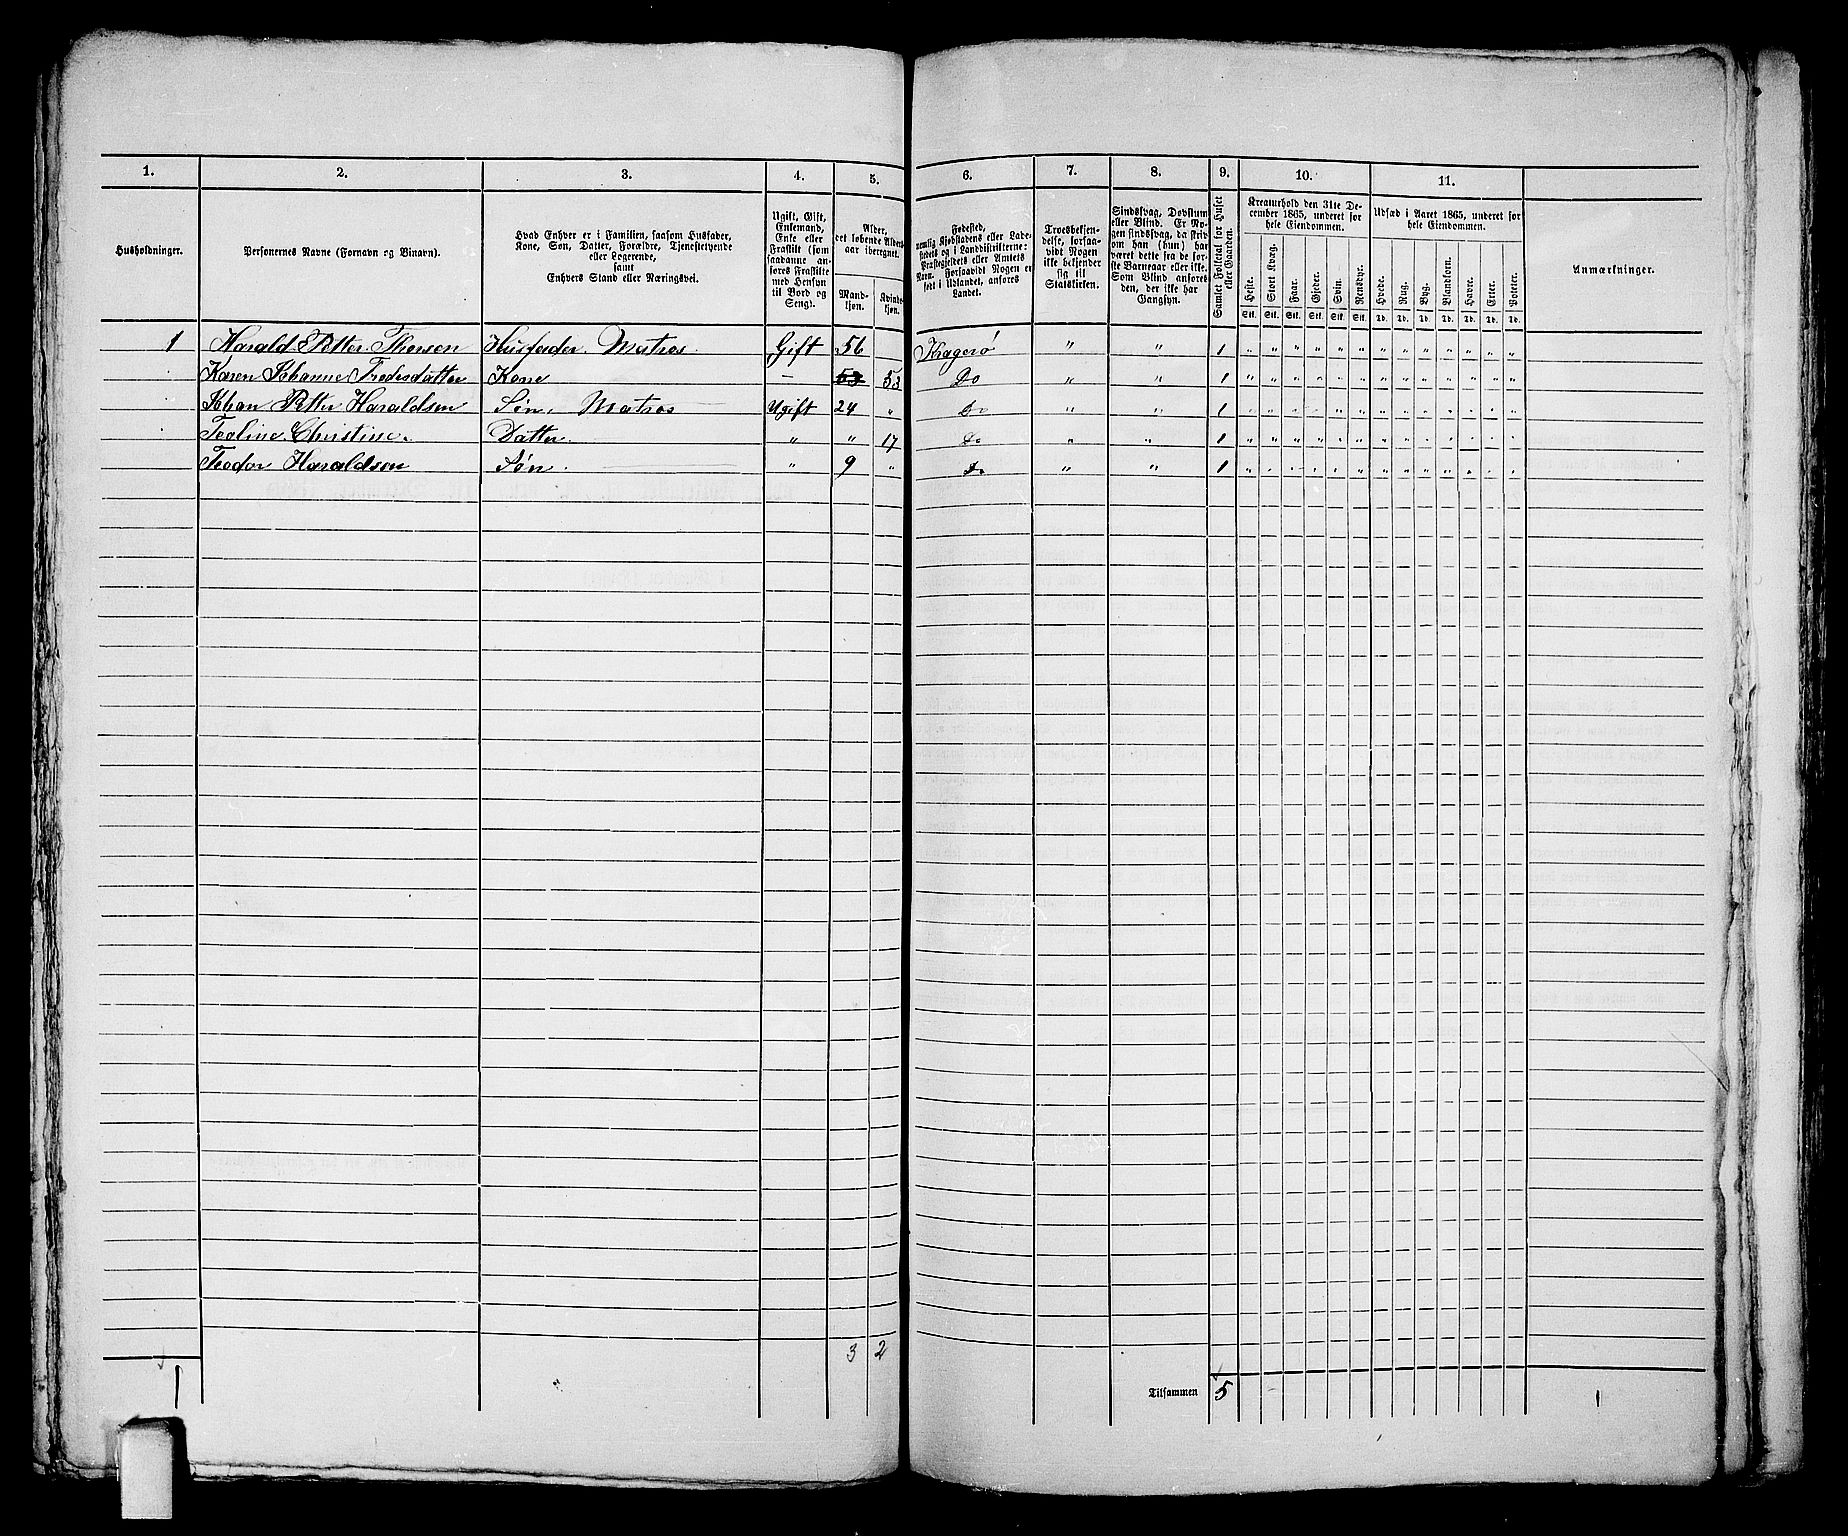 1. 2. 3. 4. 5. 6. 7. 8. 9. 10. 11.
Husholdninger.
Personernes Navne (Fornavn og Binavn).
Hvad Enhver er i Familien, saasom Husfader,
Kone, Søn, Datter, Forældre, Tjenestetyende
eller Logerende,
samt
Enhvers Stand eller Næringsvei.
Ugift, Gift,
Enkemand,
Enke eller
Fraskilt (som
saadanne an-
føres Fraskilte
med Hensyn
til Bord og
Seng).
Alder,
det løbende Alders-
aar iberegnet.
Mand-
kjøn.
Kvinde-
kjøn.
Fødested,
nemlig Kjøbstadens eller Lade-
stedets og i Landdistrikterne:
Præstegjeldets eller Amtets
Navn. Forsaavidt Nogen er
født i Udlandet, anføres
Landet.
Troesbekjen-
delse, forsaa-
vidt Nogen
ikke bekjender
sig til
Statskirken.
Sindssvag, Døvstum
eller Blind. Er No-
gen sindssvag, da skriv
om han (hun) har
været dette fra de før-
ste Barneaar eller ikke.
Som Blind anføres
den, der ikke har
Gangsyn.
Samlet Folketal for Huset
eller Gaarden.
Kreaturhold den 31te De-
cember 1865, underet for
hele Eiendommen.
Heste. Stort Kvæg. Faar. Gjeder. Svin. Rensdyr.
Stk. Stk. Stk. Stk. Stk. Stk.
Udsæd i Aaret 1865, underet for
hele Eiendommen.
Hvede. Rug. Byg. Blandkorn. Havre. Erter. Poteter.
Td. Td. Td. Td. Td. Td. Td.
Anmærkninger.
1 Harald Petter Thorsen Husfader. Matros. Gift 56 Kragerø " " 1 " " " " " " " " " " " " "
Karen Johanne Fredesdatter Kone — 53 53 Do " " 1 " " " " " " " " " " " " "
Johan Petter Haraldsen Søn, Matros Ugift 24 " Do " " 1 " " " " " " " " " " " " "
Teoline Christine. Datter. " " 17 Do " " 1 " " " " " " " " " " " " "
Teodor Haraldsen Søn. " 9 " Do " " 1 " " " " " " " " " " " " "
3 2
1 Tilsammen 5 1